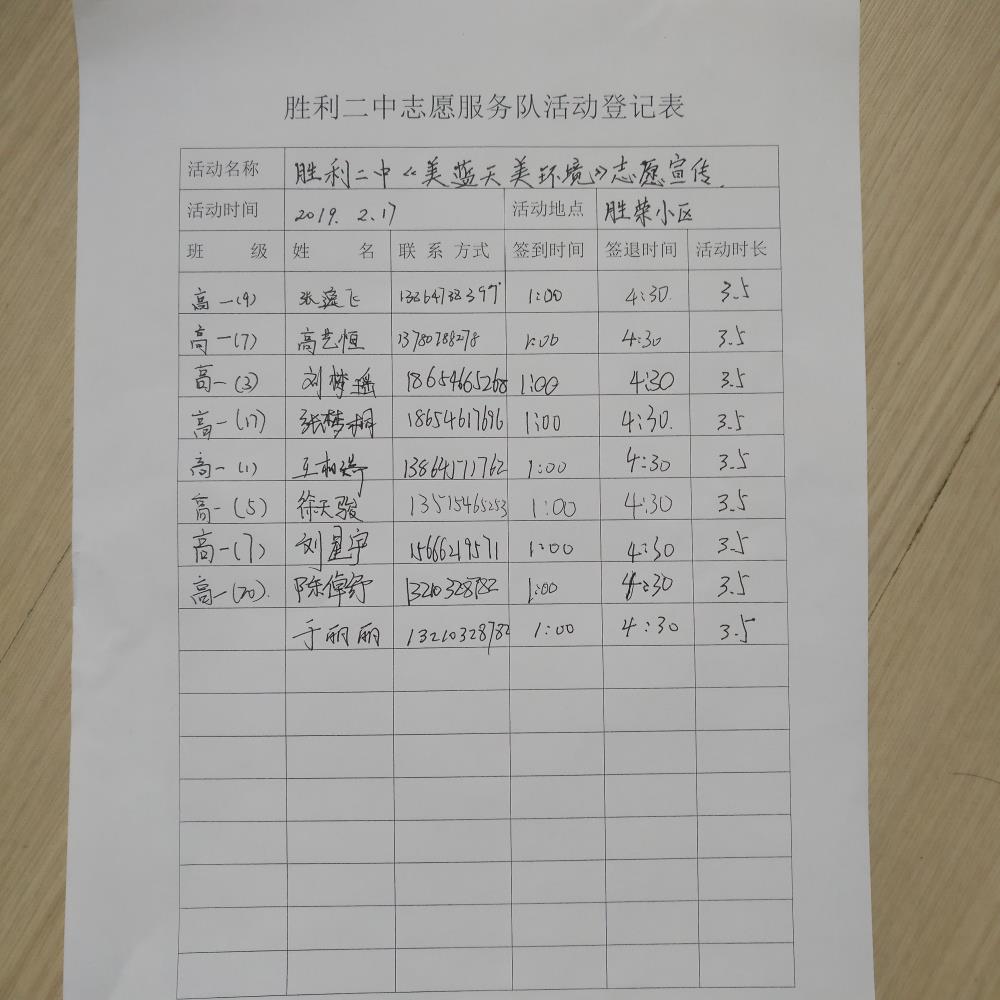 胜利二中志愿服务队活动登记表
活动名称 胜利二中《美蓝天美环境》志愿宣传.
活动时间 2019. 2.17 活动地点 胜荣小区
班 级 姓 名 联 系 方式 签到时间 签退时间 活动时长
高一(9) 张蓬飞 13264732397 1:00 4:30. 3.5
高一(7) 高艺恒 13780788278 1:00 4:30 3.5
高一(3) 刘梦瑶 18654665268 1:00 4:30 3.5
高一(17) 张梦桐 18654617696 1:00 4:30. 3.5
高一(1) 王相 13864571762 1:00 4:30 3.5
高一(5) 徐天骏 13515465253 1:00 4:30 3.5
高一(7) 刘星宇 15666219571 1:00 4:30 3.5
高一(20). 陈倬舒 13210328782 1:00 4:30 3.5
于丽丽 13210328782 1:00 4:30 3.5